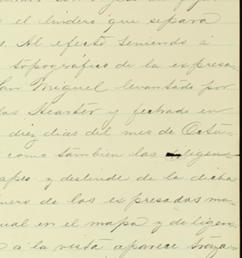 el lindero que separa
Al efecto teniendo á
topográfico de la expresa
San Miguel levantado por
las y fechado en
diez dias del mes de Octu
como tambien las diligenc
apeo y deslinde de la dicha
nero de los expresados ma
ual en el mapa y diligen
a la vista aparece traza